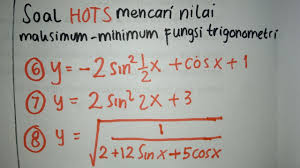 Soal HOTS mencari nilai
maksimum-minimum fungsi trigonometri
⑥ y = -2 sin² ½ x + cos x + 1
⑦ y = 2 sin² 2x + 3
⑧ y = √(1 / √(2+12 sin x+5cos x))